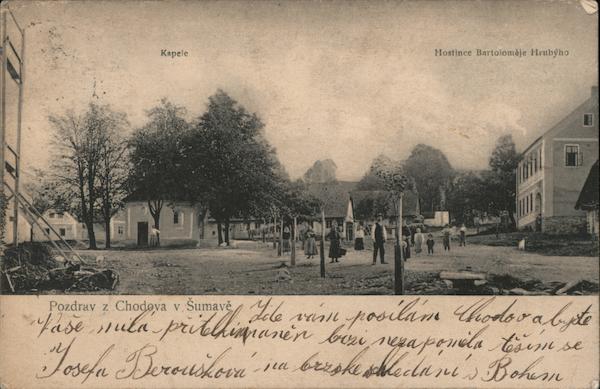 Kapele
Hostinec Bartoloměje Hrubýho
Pozdrav z Chodova v Šumavě
Zde vám posílám Chodov abyste
Vaše brzi nezaponěla těším se
Josefa Beroušková na brzské shledání s Bohem